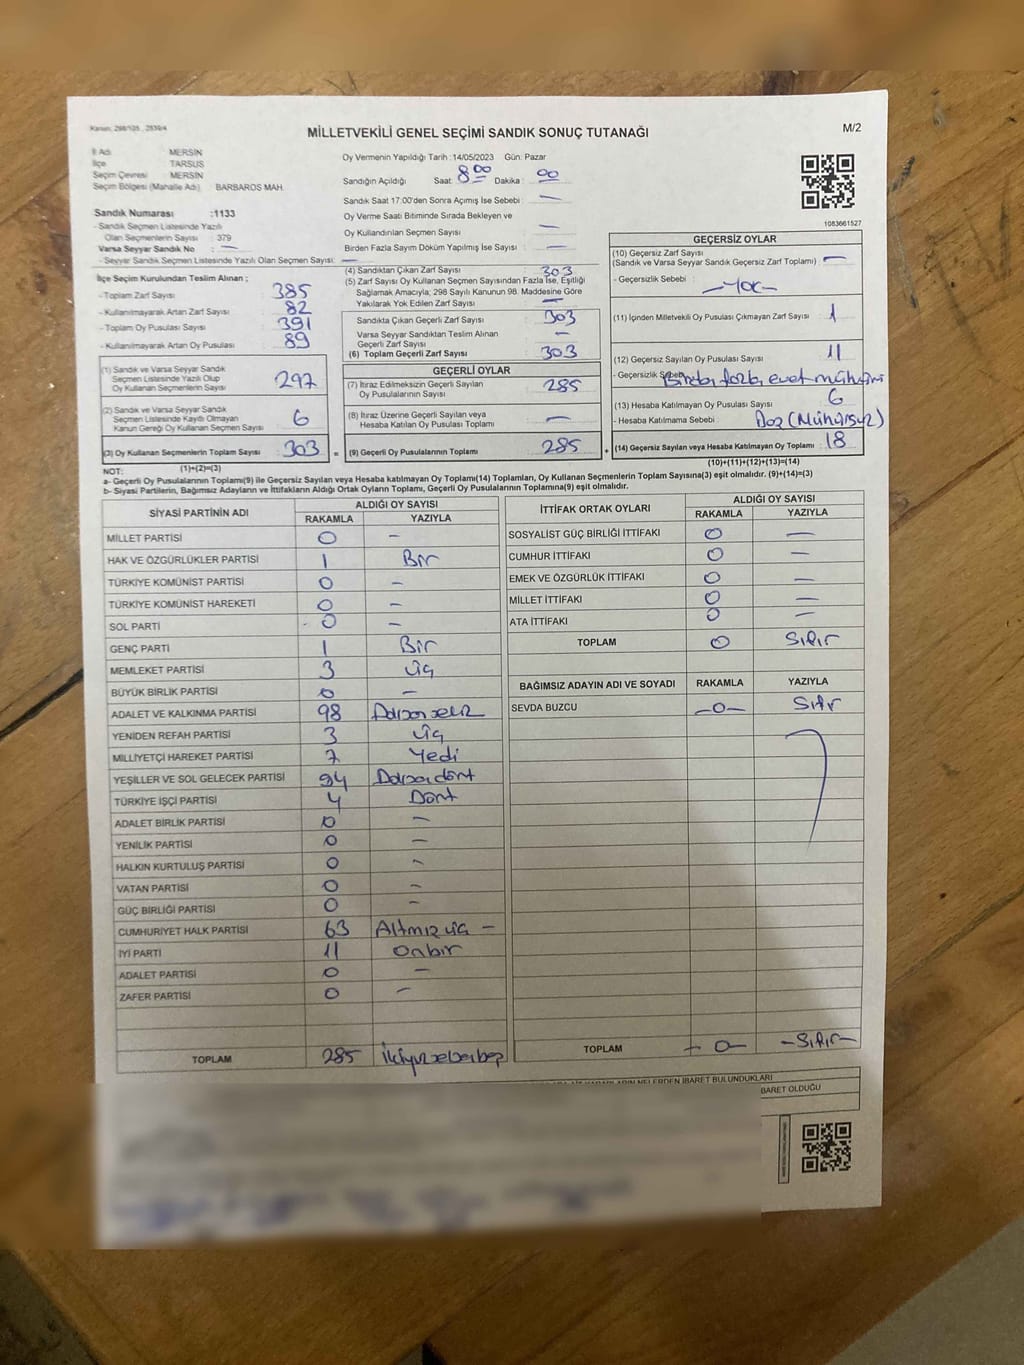 Kanun: 298/105 , 2839/4
MİLLETVEKİLİ GENEL SEÇİMİ SANDIK SONUÇ TUTANAĞI
M/2
İl Adı : MERSİN
İlçe : TARSUS
Seçim Çevresi : MERSİN
Seçim Bölgesi (Mahalle Adı) : BARBAROS MAH.
Oy Vermenin Yapıldığı Tarih :14/05/2023 Gün: Pazar
Sandığın Açıldığı Saat: 8 00 Dakika : 00
Sandık Saat 17:00'den Sonra Açımış İse Sebebi : —
Oy Verme Saati Bitiminde Sırada Bekleyen ve
Oy Kullandırılan Seçmen Sayısı : —
Birden Fazla Sayım Döküm Yapılmış İse Sayısı : —
1083661527
Sandık Numarası :1133
- Sandık Seçmen Listesinde Yazılı
Olan Seçmenlerin Sayısı : 379
Varsa Seyyar Sandık No : —
- Seyyar Sandık Seçmen Listesinde Yazılı Olan Seçmen Sayısı: —
İlçe Seçim Kurulundan Teslim Alınan ;
- Toplam Zarf Sayısı : 385
- Kullanılmayarak Artan Zarf Sayısı : 82
- Toplam Oy Pusulası Sayısı : 391
- Kullanılmayarak Artan Oy Pusulası : 89
(1) Sandık ve Varsa Seyyar Sandık
Seçmen Listesinde Yazılı Olup
Oy Kullanan Seçmenlerin Sayısı : 297
(2) Sandık ve Varsa Seyyar Sandık
Seçmen Listesinde Kayıtlı Olmayan
Kanun Gereği Oy Kullanan Seçmen Sayısı : 6
(3) Oy Kullanan Seçmenlerin Toplam Sayısı : 303 =
(1)+(2)=(3)
(4) Sandıktan Çıkan Zarf Sayısı : 303
(5) Zarf Sayısı Oy Kullanan Seçmen Sayısından Fazla İse, Eşitliği
Sağlamak Amacıyla; 298 Sayılı Kanunun 98. Maddesine Göre
Yakılarak Yok Edilen Zarf Sayısı : —
Sandıkta Çıkan Geçerli Zarf Sayısı : 303
Varsa Seyyar Sandıktan Teslim Alınan
Geçerli Zarf Sayısı : —
(6) Toplam Geçerli Zarf Sayısı : 303
GEÇERLİ OYLAR
(7) İtiraz Edilmeksizin Geçerli Sayılan
Oy Pusulalarının Sayısı : 285
(8) İtiraz Üzerine Geçerli Sayılan veya
Hesaba Katılan Oy Pusulası Toplamı : —
(9) Geçerli Oy Pusulalarının Toplamı : 285 +
GEÇERSİZ OYLAR
(10) Geçersiz Zarf Sayısı
(Sandık ve Varsa Seyyar Sandık Geçersiz Zarf Toplamı) : —
- Geçersizlik Sebebi : —Yok—
(11) İçinden Milletvekili Oy Pusulası Çıkmayan Zarf Sayısı : 1
(12) Geçersiz Sayılan Oy Pusulası Sayısı : 11
- Geçersizlik Sebebi
(13) Hesaba Katılmayan Oy Pusulası Sayısı : 6
- Hesaba Katılmama Sebebi : (Mühürsüz)
(14) Geçersiz Sayılan veya Hesaba Katılmayan Oy Toplamı : 18
(10)+(11)+(12)+(13)=(14)
NOT:
a- Geçerli Oy Pusulalarının Toplamı(9) ile Geçersiz Sayılan veya Hesaba Katılmayan Oy Toplamı(14) Toplamları, Oy Kullanan Seçmenlerin Toplam Sayısına(3) eşit olmalıdır. (9)+(14)=(3)
b- Siyasi Partilerin, Bağımsız Adayların ve İttifakların Aldığı Ortak Oyların Toplamı, Geçerli Oy Pusulalarının Toplamına(9) eşit olmalıdır.
SİYASİ PARTİNİN ADI ALDIĞI OY SAYISI
RAKAMLA YAZIYLA
MİLLET PARTİSİ 0 —
HAK VE ÖZGÜRLÜKLER PARTİSİ 1 Bir
TÜRKİYE KOMÜNİST PARTİSİ 0 —
TÜRKİYE KOMÜNİST HAREKETİ 0 —
SOL PARTİ 0 —
GENÇ PARTİ 1 Bir
MEMLEKET PARTİSİ 3 üç
BÜYÜK BİRLİK PARTİSİ 0 —
ADALET VE KALKINMA PARTİSİ 98
YENİDEN REFAH PARTİSİ 3 üç
MİLLİYETÇİ HAREKET PARTİSİ 7 Yedi
YEŞİLLER VE SOL GELECEK PARTİSİ 94
TÜRKİYE İŞÇİ PARTİSİ 4 Dört
ADALET BİRLİK PARTİSİ 0 —
YENİLİK PARTİSİ 0 —
HALKIN KURTULUŞ PARTİSİ 0 —
VATAN PARTİSİ 0 —
GÜÇ BİRLİĞİ PARTİSİ 0 —
CUMHURİYET HALK PARTİSİ 63 Altmış üç —
İYİ PARTİ 11 Onbir
ADALET PARTİSİ 0 —
ZAFER PARTİSİ 0 —
TOPLAM 285
İTTİFAK ORTAK OYLARI ALDIĞI OY SAYISI
RAKAMLA YAZIYLA
SOSYALİST GÜÇ BİRLİĞİ İTTİFAKI 0 —
CUMHUR İTTİFAKI 0 —
EMEK VE ÖZGÜRLÜK İTTİFAKI 0 —
MİLLET İTTİFAKI 0 —
ATA İTTİFAKI 0 —
TOPLAM 0 Sıfır
BAĞIMSIZ ADAYIN ADI VE SOYADI RAKAMLA YAZIYLA
SEVDA BUZCU —0— Sıfır
TOPLAM —0— —Sıfır—
NELERDEN İBARET BULUNDUKLARI
BARET OLDUĞU